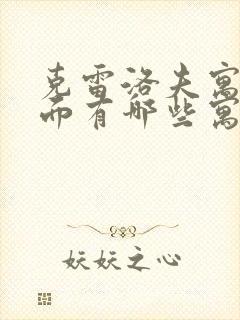 克雷洛夫寓
而有哪些寓
妖妖之心